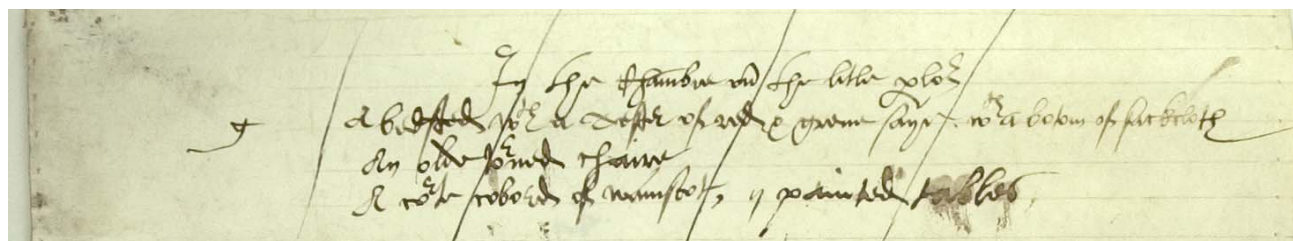 In the Chambre ov the litle plor
A bedsted wt a Tester of red & grene saye. wt a botom of sackcloth
An olde joyned chaire
A corte cobord of wainscot, ij painted tables.